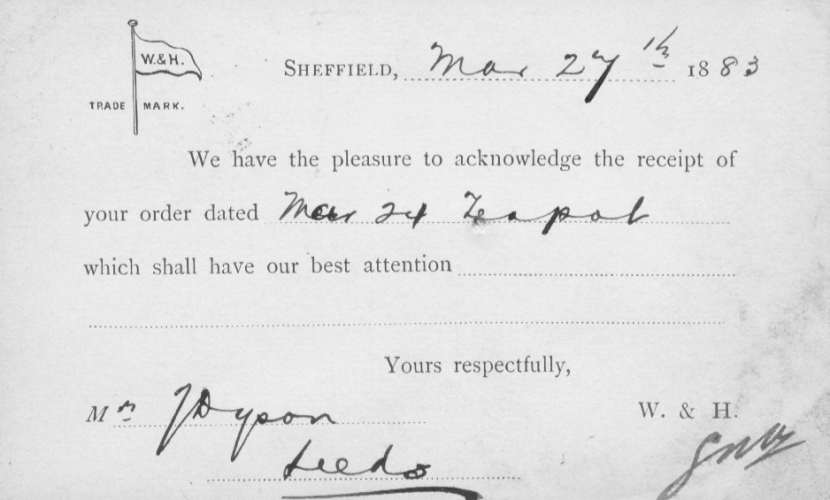 W. & H.
TRADE MARK.
SHEFFIELD, Mar 27th 1883
We have the pleasure to acknowledge the receipt of
your order dated Mar 24 Teapot
which shall have our best attention
Yours respectfully,
Mr J Dyson W. & H.
Leeds